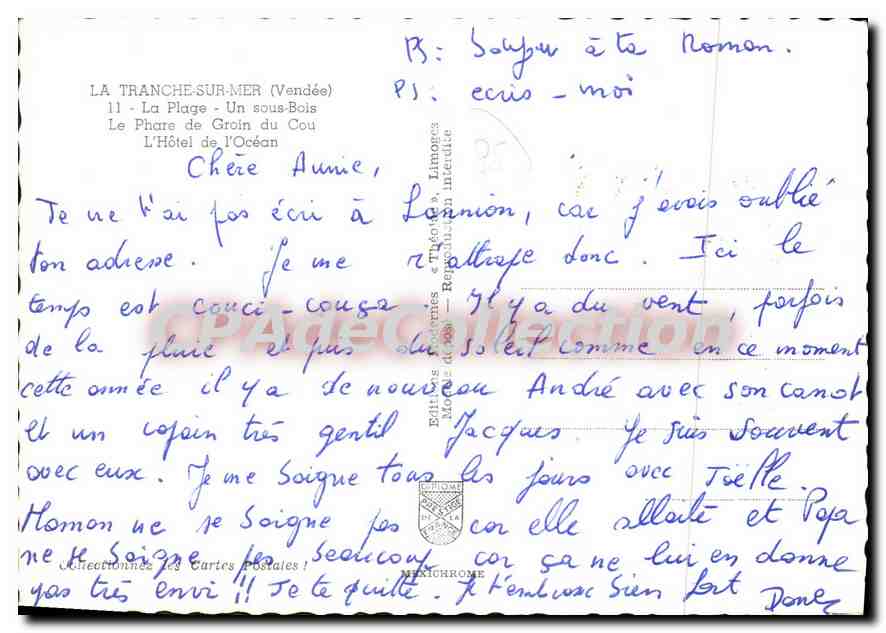 PS: à ta Maman.
PS: ecris-moi
LA TRANCHE-SUR-MER (Vendée)
11 - La Plage - Un sous-Bois
Le Phare de Groin du Cou
L'Hôtel de l'Océan
Chère Annie,
Je ne t'ai pas écri à Lannion, car j'avais oublié
ton adresse. Je me r'attrape donc. Ici le
temps est couci-couça. Il y a du vent, parfois
de la pluie et puis du soleil comme en ce moment
cette année il y a de nouveau André avec son canot
et un copain très gentil Jacques. Je suis souvent
avec eux. Je me baigne tous les jours avec Joëlle.
Maman ne se baigne pas car elle allaite et Papa
ne se baigne pas beaucoup car ça ne lui en donne
pas très envi!! Je te quitte. Je t'embrasse bien fort
Editions Modernes « Théojac », Limoges
Modèle déposé — Reproduction interdite
CPAdeCollection
DIPLOME
PRESTIGE
DE LA
FRANCE
Collectionnez les Cartes Postales !
MEXICHROME